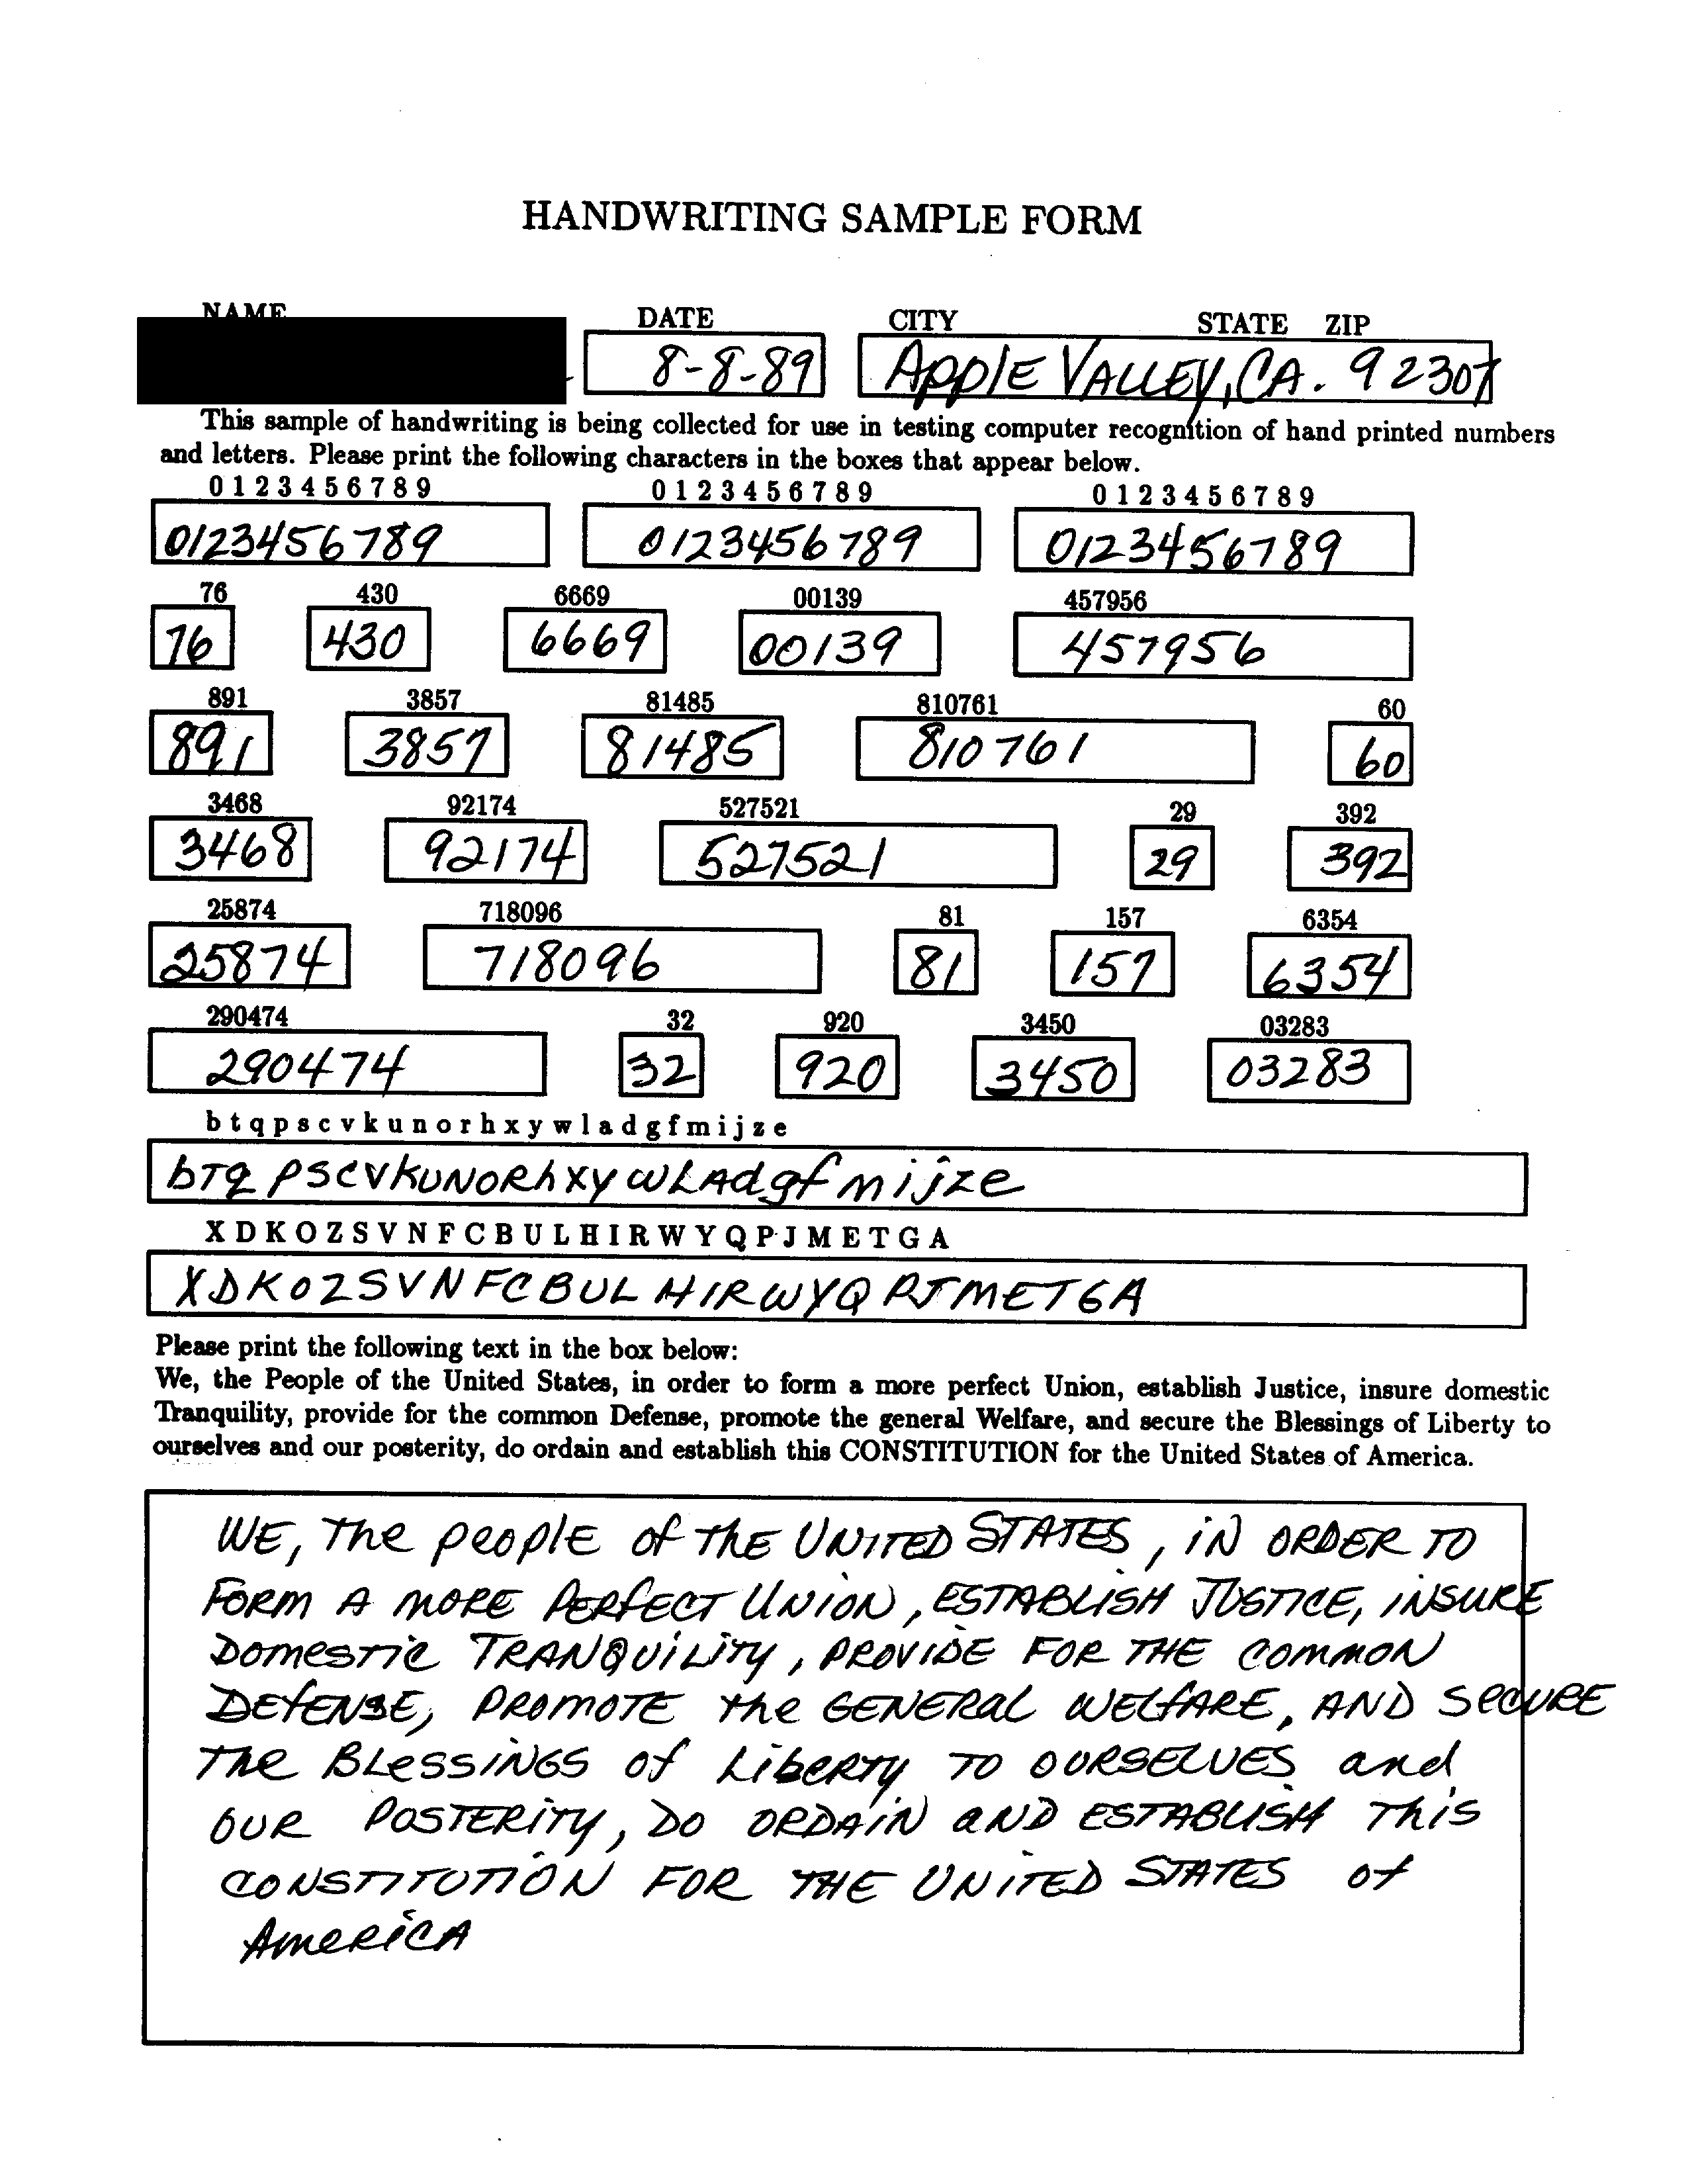 HANDWRITING SAMPLE FORM
NAME DATE CITY STATE ZIP
8-8-89 APPlE VALLEY, CA. 92307
This sample of handwriting is being collected for use in testing computer recognition of hand printed numbers
and letters. Please print the following characters in the boxes that appear below.
0 1 2 3 4 5 6 7 8 9 0 1 2 3 4 5 6 7 8 9 0 1 2 3 4 5 6 7 8 9
0123456789 0123456789 0123456789
76 430 6669 00139 457956
76 430 6669 00139 457956
891 3857 81485 810761 60
891 3857 81485 810761 60
3468 92174 527521 29 392
3468 92174 527521 29 392
25874 718096 81 157 6354
25874 718096 81 157 6354
290474 32 920 3450 03283
290474 32 920 3450 03283
b t q p s c v k u n o r h x y w l a d g f m i j z e
bTq PSCVKUNORhXYWLAdgfmijze
X D K O Z S V N F C B U L H I R W Y Q P J M E T G A
XDKOZSVNFCBULHIRWYQPJMETGA
Please print the following text in the box below:
We, the People of the United States, in order to form a more perfect Union, establish Justice, insure domestic
Tranquility, provide for the common Defense, promote the general Welfare, and secure the Blessings of Liberty to
ourselves and our posterity, do ordain and establish this CONSTITUTION for the United States of America.
WE, The peoplE of ThE UNITED STATES, iN ORDER TO
FORM A MORE PERfECT UNiON, ESTABLiSH JUSTICE, iNSURE
DomesTic TRANQUiLiTy, PROViDE FOR THE COMMON
DEfENSE, PROMOTE the GENERAL WELfARE, AND SeCURE
The BLessiNGS of LibeRTy TO OURSELVES and
OUR POSTERiTy, DO ORDAiN aND ESTABLiSH This
CONSTiTUTiON FOR THE UNiTED STATES of
AmeRiCA